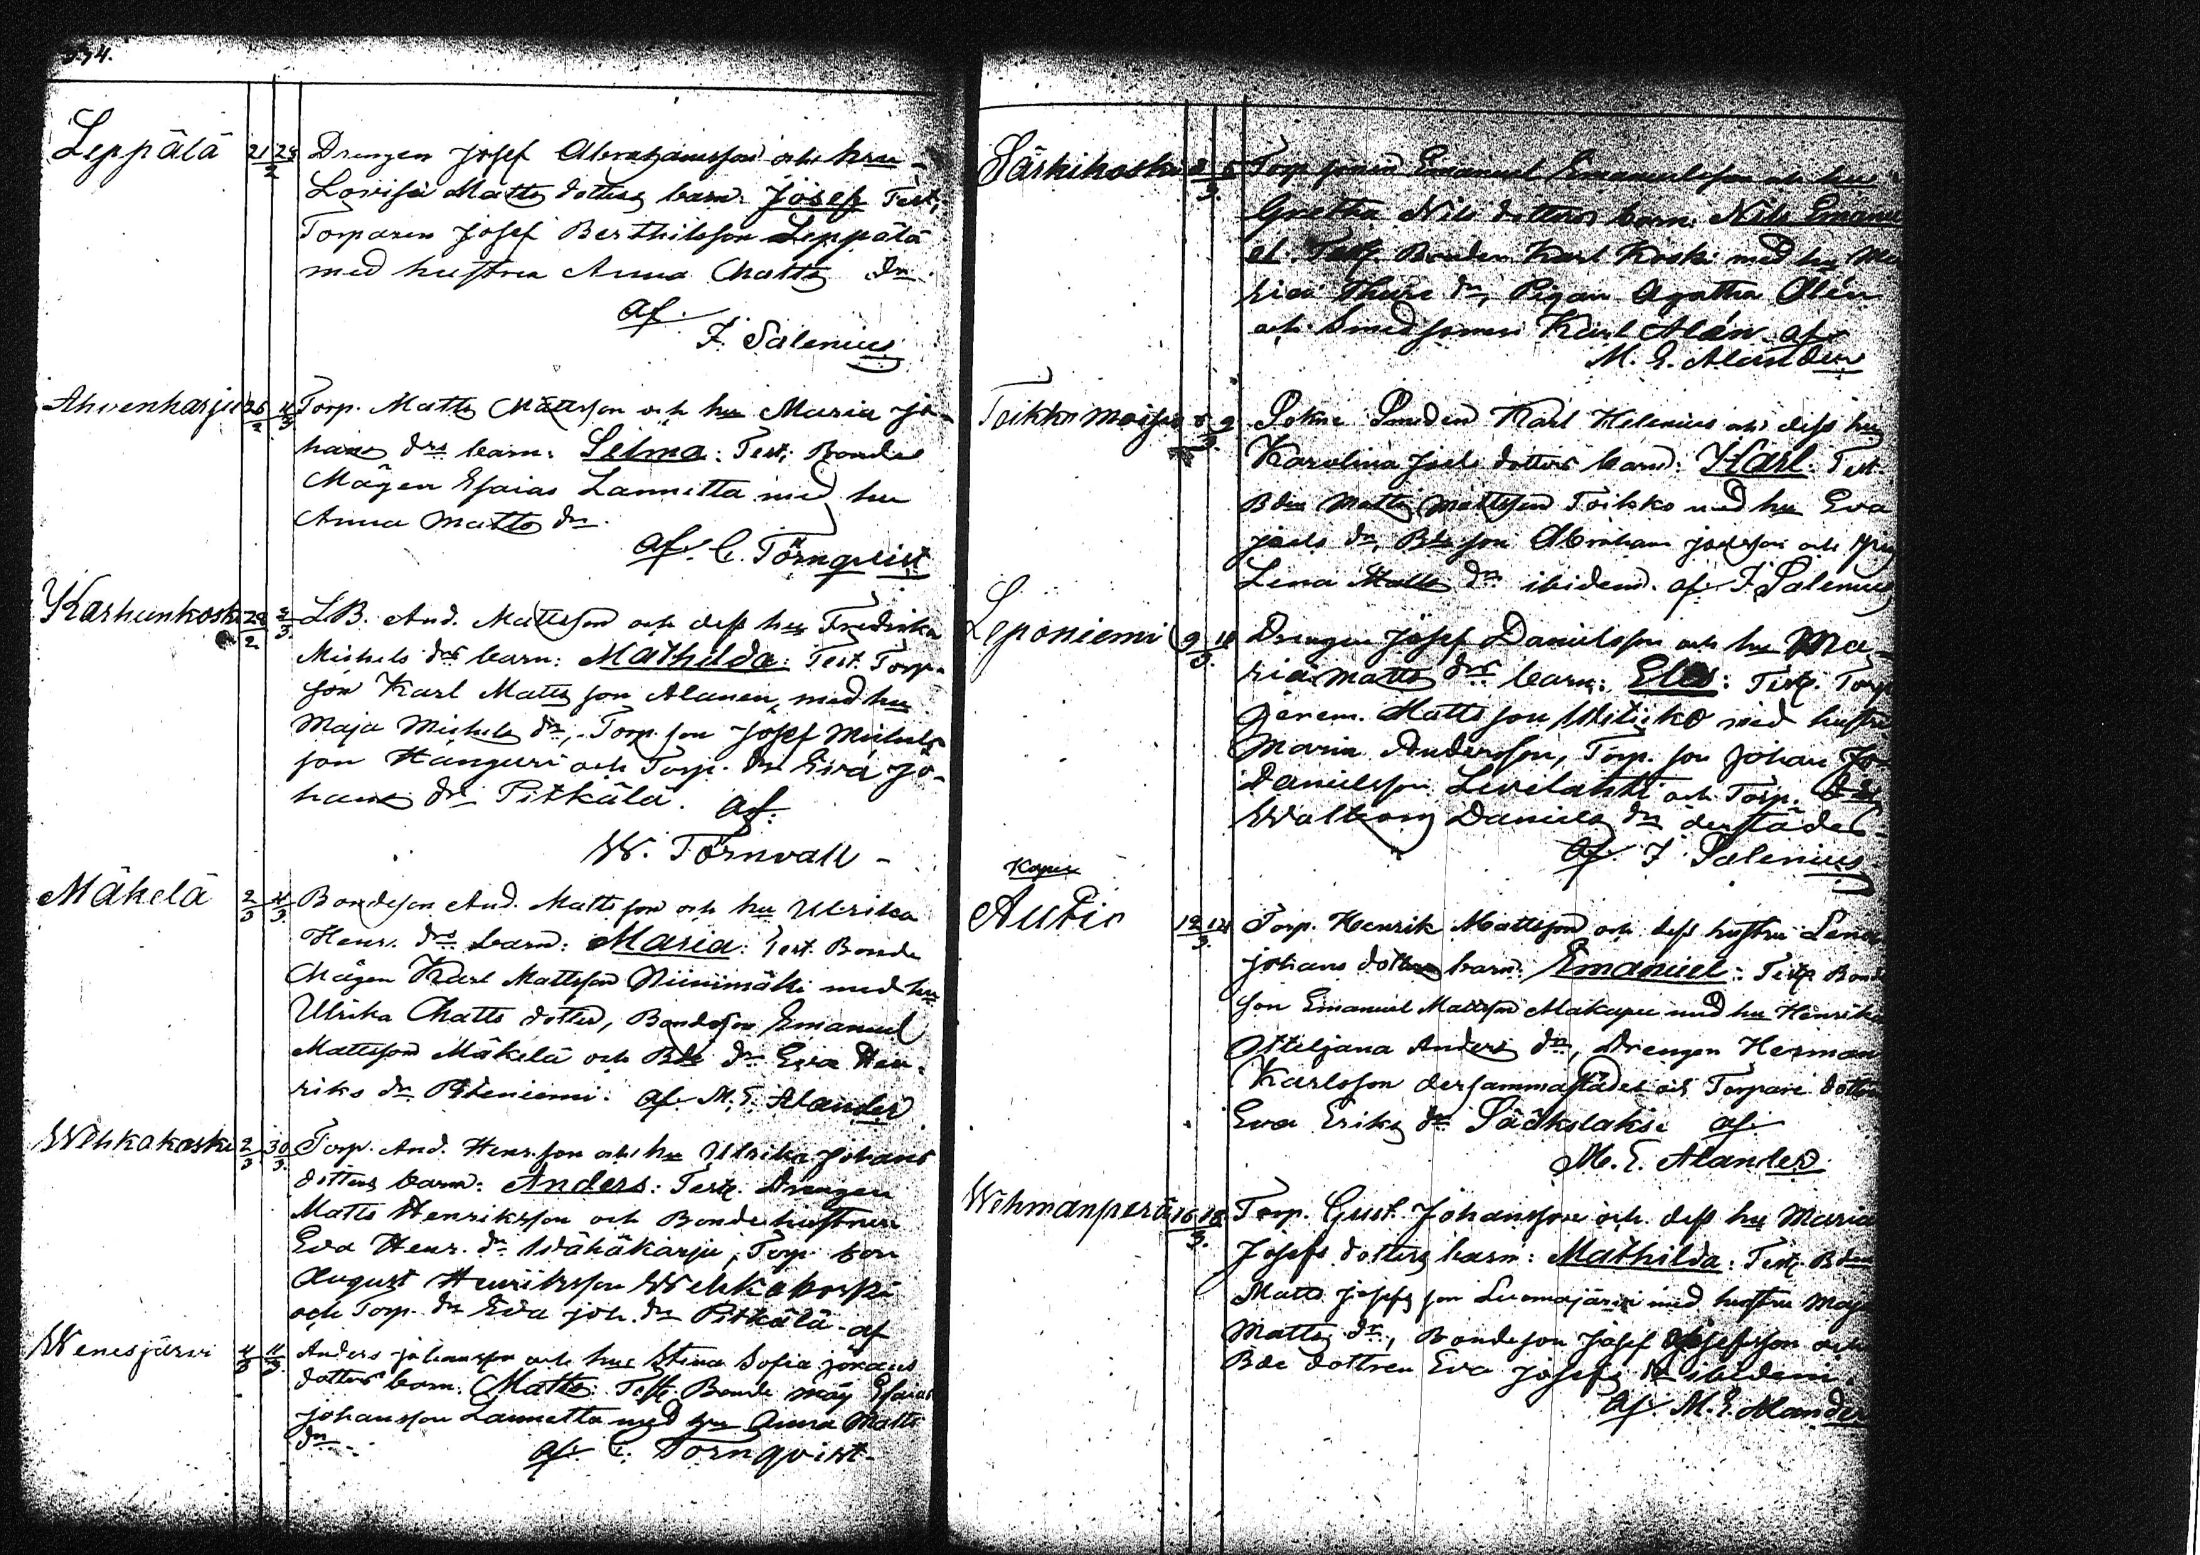 334.
Leppälä 21 23/2 Drengen Josef Abrahamsson och hru
Lovisa Matts dotters barn: Josef Test;
Torparen Josef Berthilsson Leppälä
med hustru Anna Matts dr.
af.
F. Salenius
Ahvenharju 26/2 4/3 Torp. Matts Mattsson och hu Maria Jo-
hans drs barn: Selma: Test; Bonde
Mågen Esaias Lannetta med hu
Anna Matts dr.
af. C. Törnqvist
Karhunkoski 28/2 2/3 LB. And. Mattsson och dess hu Fredrika
Michels drs barn: Mathilda: Test. Torp-
son Karl Matts son Alanen, med hu
Maja Michels dr, Torp. son Josef Michels
son Hanguri och Torp. dr Eva Jo-
hans dr Pitkälä. af.
W. Törnvall -
Mäkelä 2/3 4/3 Bondeson And. Matts son och hu Ulrika
Henr. drs barn: Maria: Test. Bonde
Mågen Karl Mattsson Niinimäki med hu
Ulrika Matts dotter, Bondeson Emanuel
Mattsson Mäkelä och Bde dr Eva Hen-
riks dr af M. E. Alander
Wehkakoski 2/3 30/3 Torp. And. Henr. son och hu Ulrika Johans
dotters barn: Anders: Test. Drengen
Matts Henriksson och Bondehustrun
Eva Henr. dr Wähäkarju, Torp son
August Henriksson Wehkakoski
och Torp. dr Eva Joh. dr Pitkälä. af
Wenesjärvi 4/3 11/3 Anders Johansson och hu Stina Sofia Johans
dotters barn: Matts: Test. Bonde måg Esaias
Johansson Lannetta med hu Anna Matts
dr. af. C. Törnqvist.
Särkikoski 3 5/3 Torp sonen Emanuel Emanuelsson och hu
Gretha Nils dotters barn: Nils Emanu
el. Test. Bonden Karl Koski med hu Ma
ria Thure dr, Pigan Agatha Alén
och Smedsonen Karl Alén. af
M. E. Alander
Toikko 5 9/3 Sokne Smeden Karl Helenius och dess hu
Karolina Joels dotters barn: Karl. Test.
Bden Matts Mattsson Toikko med hu Eva
Joels dr, Bde son Abraham Joelsson och
Lena Matts dr ibidem. af F. Salenius
Leponiemi 9 10/3. Drengen Josef Danielsson och hu Ma-
ria Matts drs barn: Test. Torp
Jerem. Matts son med hustru
Maria Andersson, Torp. son Johan Jo-
Danielsson Levilahti och Torp.
Walborg Daniels dr derstädes.
af. F. Salenius.
Kapu
Autio 12 14/3. Torp. Henrik Mattsson och dess hustru Lena
Johans dotters barn: Emanuel: Test. Bonde
son Emanuel Mattsson Alakapee med hu Henrika
Otteljana Anders dr, Drengen Herman
Karlsson dersammastädes och Torpare dotter
Eva Eriks dr Sääkslaksi af.
M. E. Alander
Wehmanperä 16 18/3. Torp. Gust. Johansson och dess hu Maria
Josefs dotters barn: Mathilda: Test. Bden
Matts Josefs son Luomajärvi med hustru Maja
Matts dr, Bondeson Josef Josefsson och
Bde dottren Eva Josefs dr ibidem.
af. M. E. Alander